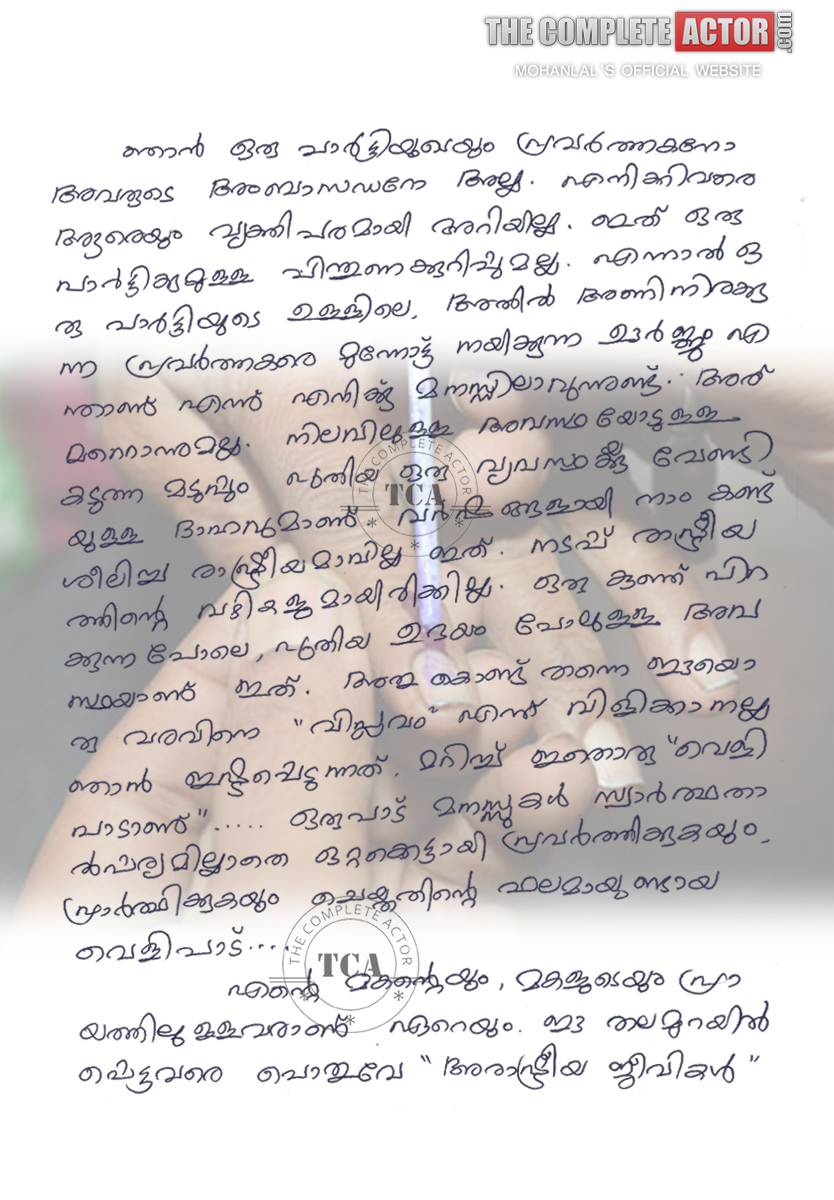 THE COMPLETE ACTOR.com
MOHANLAL'S OFFICIAL WEBSITE
ഞാൻ ഒരു പാർട്ടിയുടെയും പ്രവർത്തകനോ
അവരുടെ അംബാസഡനോ അല്ല. എനിക്കിവരെ
ആരെയും വ്യക്തിപരമായി അറിയില്ല. ഇത് ഒരു
പാർട്ടിക്കുമുള്ള പിന്തുണക്കുറിപ്പുമല്ല. എന്നാൽ ഒ
രു പാർട്ടിയുടെ ഉള്ളിലെ, അതിൽ അണിനിരക്കു
ന്ന പ്രവർത്തകരെ മുന്നോട്ട് നയിക്കുന്ന ഊർജ്ജം എ
ന്താണ് എന്ന് എനിക്ക് മനസ്സിലാവുന്നുണ്ട്. അത്
മറ്റൊന്നുമല്ല. നിലവിലുള്ള അവസ്ഥയോടുള്ള
കടുത്ത മടുപ്പും പുതിയ ഒരു വ്യവസ്ഥക്കു വേണ്ടി
യുള്ള ദാഹവുമാണ് വർഷങ്ങളായി നാം കണ്ട്
ശീലിച്ച രാഷ്ട്രീയമാവില്ല ഇത്. നടപ്പ് രാഷ്ട്രീയ
ത്തിന്റെ വഴികളുമായിരിക്കില്ല. ഒരു കുഞ്ഞ് പിറ
ക്കുന്ന പോലെ, പുതിയ ഉദയം പോലുള്ള അവ
സ്ഥയാണ് ഇത്. അതു കൊണ്ട് തന്നെ ഇയൊ
രു വരവിനെ "വിപ്ലവം" എന്ന് വിളിക്കാനല്ല
ഞാൻ ഇഷ്ടപ്പെടുന്നത്. മറിച്ച് ഇതൊരു "വെളി
പാടാണ്"..... ഒരുപാട് മനസ്സുകൾ സ്വാർത്ഥതാ
ൽപര്യമില്ലാതെ ഒറ്റക്കെട്ടായി പ്രവർത്തിക്കുകയും,
പ്രാർത്ഥിക്കുകയും ചെയ്തതിന്റെ ഫലമായുണ്ടായ
വെളിപാട്....
എന്റെ മകന്റെയും, മകളുടെയും പ്രാ
യത്തിലുള്ളവരാണ് ഏറെയും. ഈ തലമുറയിൽ
പെട്ടവരെ പൊതുവേ "അരാഷ്ട്രീയ ജീവികൾ"
THE COMPLETE ACTOR
TCA
THE COMPLETE ACTOR
TCA